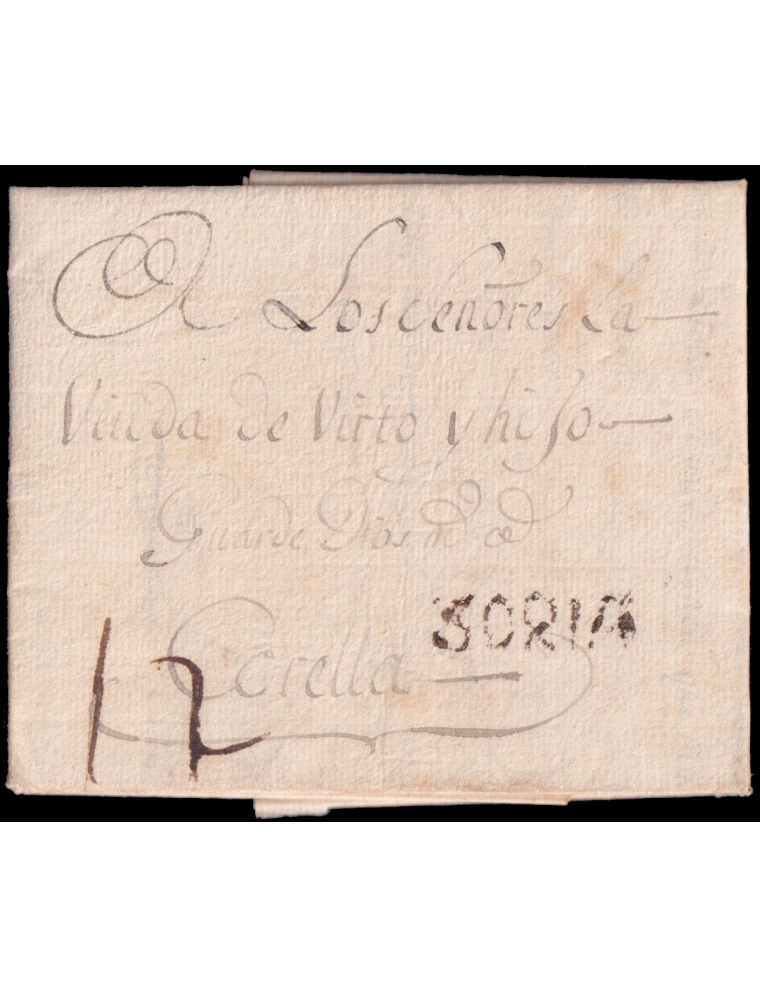 A Los ceñores La
Viuda de Virto y hijo
Guarde Dios m.s a.s
SORIA
Corella
12